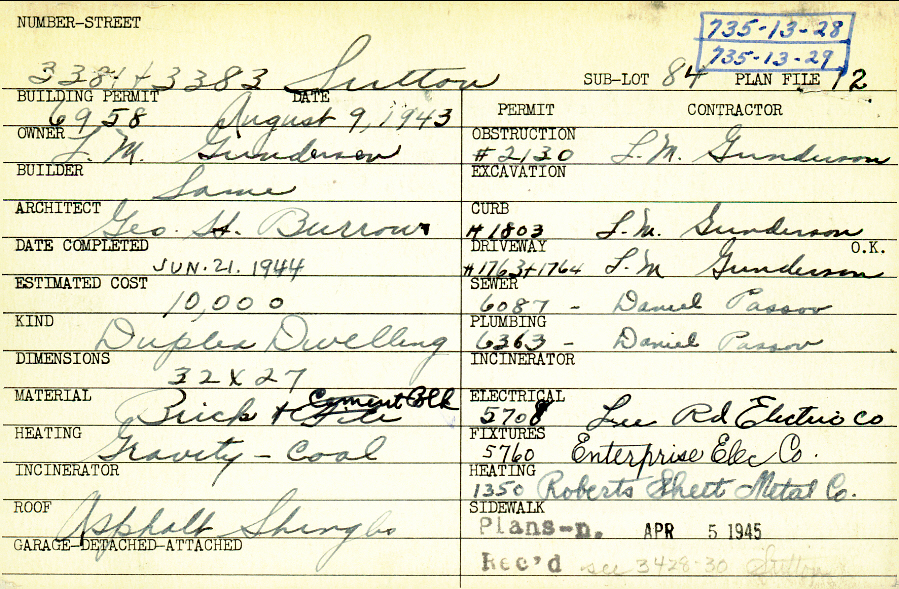 NUMBER-STREET
735-13-28
735-13-29
3381 + 3383 Sutton
SUB-LOT 84 PLAN FILE 12
BUILDING PERMIT DATE
6958 August 9, 1943
PERMIT CONTRACTOR
OWNER L. M. Gunderson
OBSTRUCTION
#2130 L. M. Gunderson
BUILDER Same
EXCAVATION
ARCHITECT Geo. H. Burrows
CURB
#1803 L. M. Gunderson
DATE COMPLETED
JUN. 21. 1944
DRIVEWAY O.K.
#1763+1764 L. M Gunderson
ESTIMATED COST
10,000
SEWER
6087 - Daniel Passov
KIND
Duplex Dwelling
PLUMBING
6363 - Daniel Passov
DIMENSIONS
32 X 27
INCINERATOR
MATERIAL
Brick + Tile Cement Blk
ELECTRICAL
5708 Lee Rd Electric Co
HEATING
Gravity - Coal
FIXTURES
5760 Enterprise Elec Co.
INCINERATOR
HEATING
1350 Roberts Sheet Metal Co.
ROOF
Asphalt Shingles
SIDEWALK
Plans-n. APR 5 1945
GARAGE-DETACHED-ATTACHED
Rec'd see 3428-30 Sutton